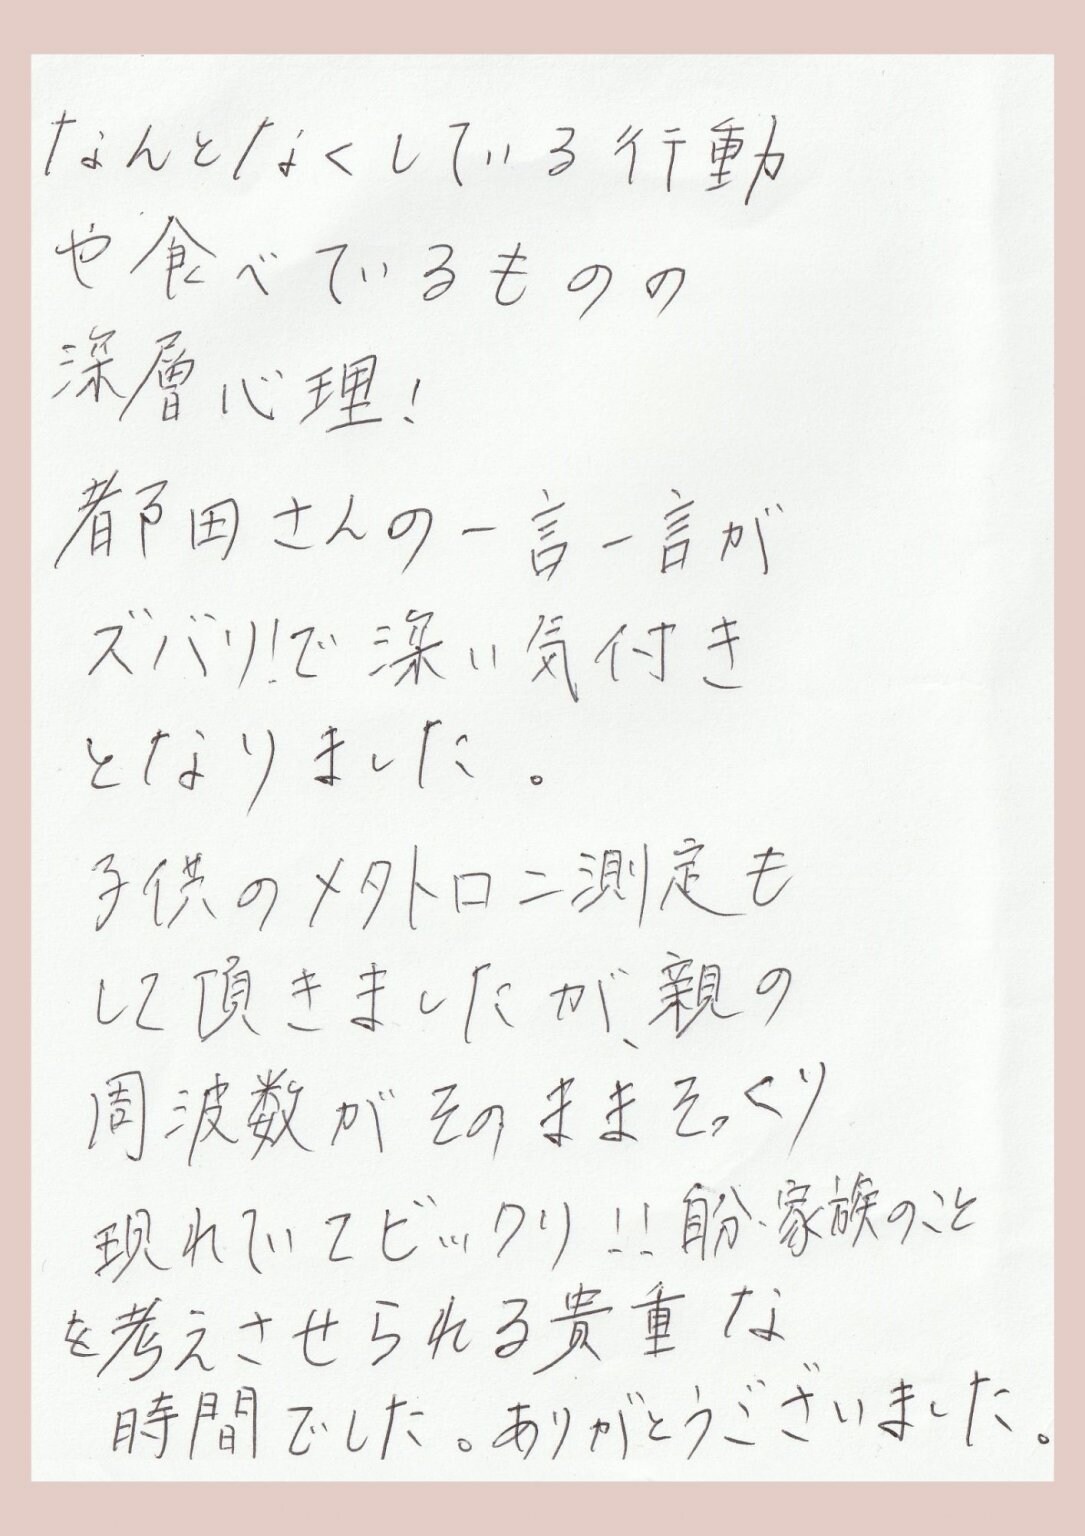 なんとなくしている行動
や食べているものの
深層心理!
都田さんの一言一言が
ズバリ!で深い気付き
となりました。
子供のメタトロニ測定も
して頂きましたが、親の
周波数がそのままそっくり
現れていてビックリ!!自分・家族のこと
を考えさせられる貴重な
時間でした。ありがとうございました。